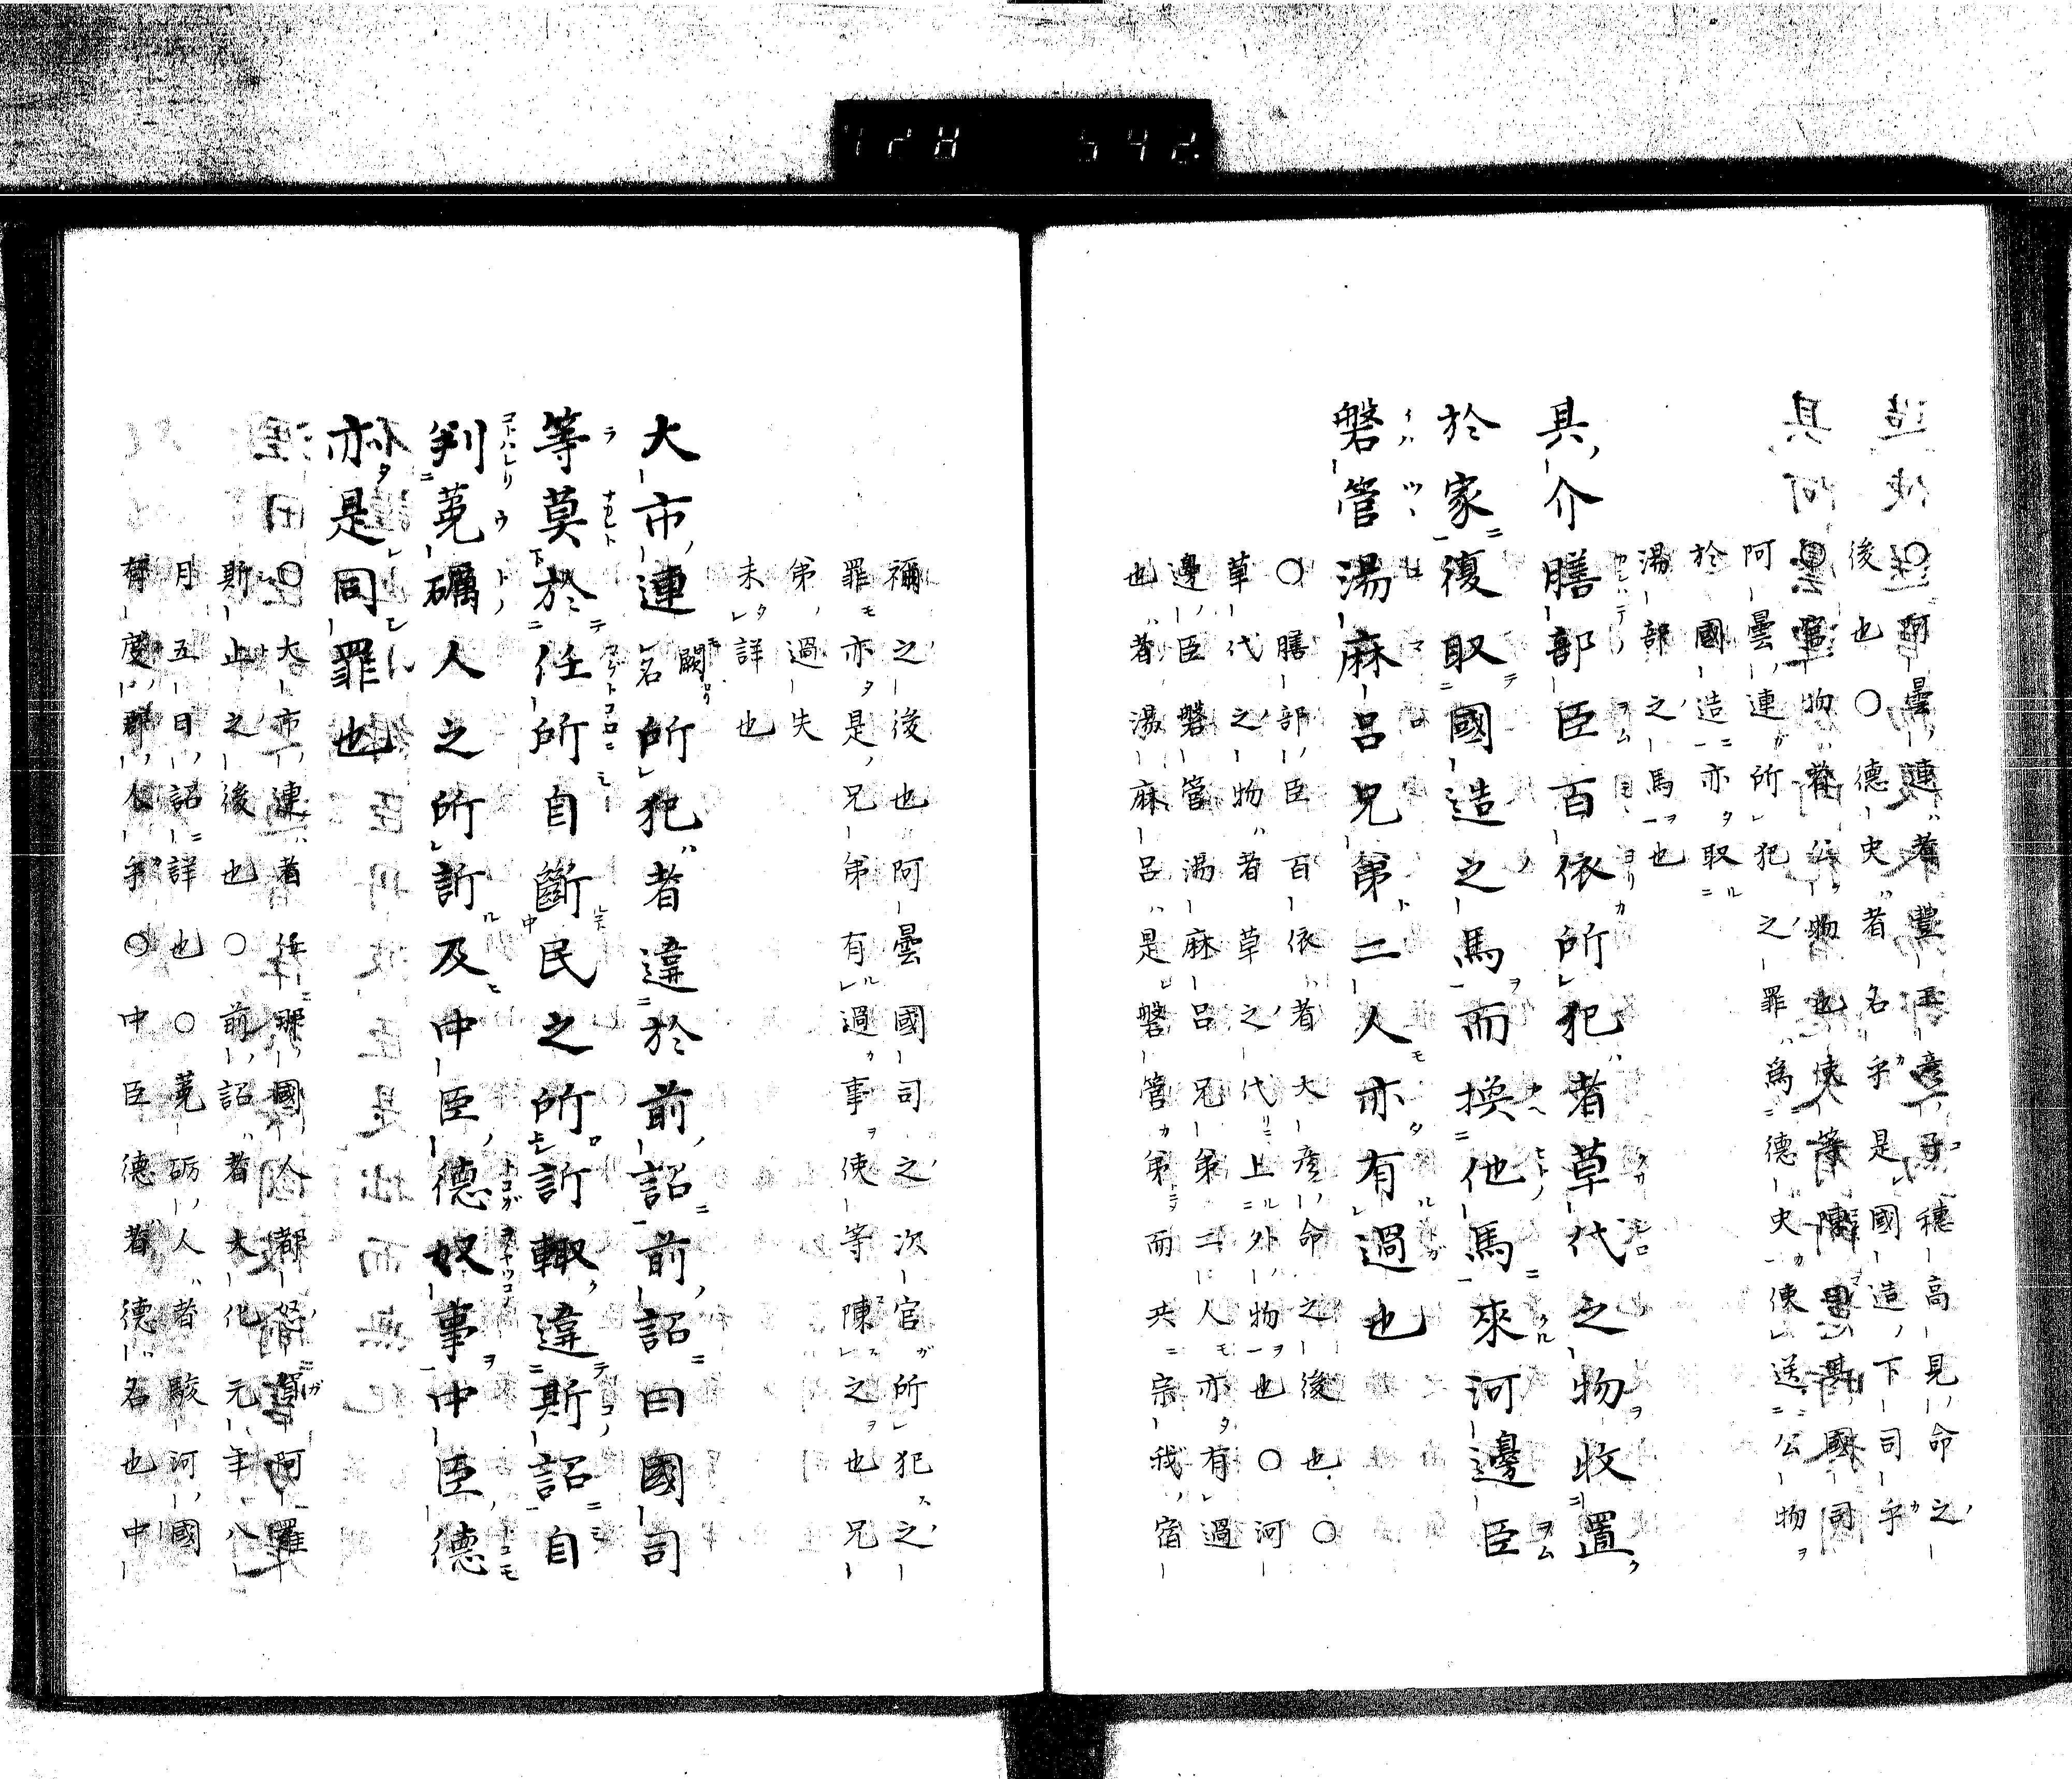 ○阿曇連者豊玉彦子穗高見命之
後也○德史者名乎是國造下司乎
官物者公物也使人等陳其國司
阿曇連所犯之罪爲德史使送公物
於國造亦取
湯部之馬也
其介膳部臣百依所犯者草代之物收置
於家復取國造之馬而換他馬來河邊臣
磐管湯麻呂兄第二人亦有過也
○膳部臣百依者大彦命之後也○
草代之物者草之代上外物也○河
邊臣磐管湯麻呂兄第二人亦有過
也者湯麻呂是磐管弟而共宗我宿
禰之後也阿曇國司之次官所犯之
罪亦是兄第有過事使等陳之也兄
第過失
未詳也
大市連闕名所犯者違於前詔前詔曰國司
等莫於任所自斷民之所訴輙違斯詔自
判菟礪人之所訴及中臣德奴事中臣德
亦是同罪也
○大市連者任那國人都怒賀阿羅
斯止之後也○前詔者大化元年八
月五日詔詳也○菟砺人者駿河國
有度郡人乎○中臣德者德名也中